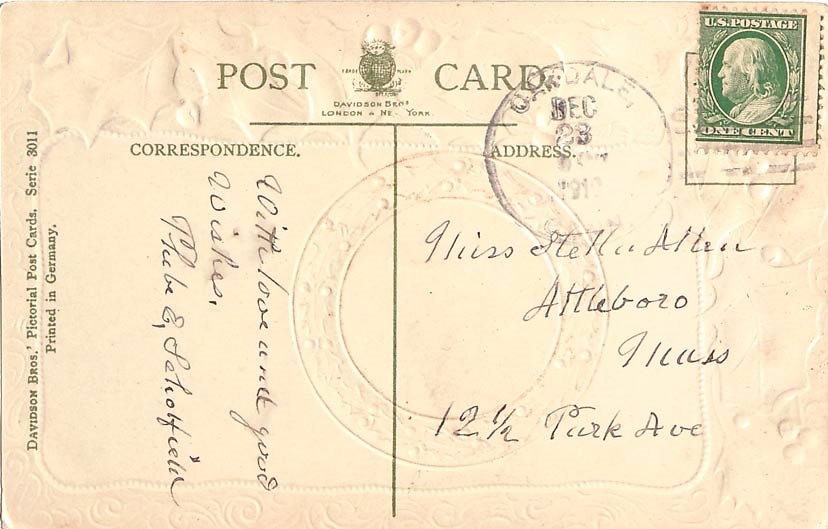 POST CARD
TRADE MARK
DAVIDSON BROS
LONDON & NEW YORK.
CORRESPONDENCE.
ADDRESS.
U.S. POSTAGE
ONE CENT
DEC
23
With love and good
Wishes.
Phebe E, Scholfield
Miss Stella Allen
Attleboro
Mass
12 ½ Park Ave
DAVIDSON BROS.' Pictorial Post Cards, Serie 3011
Printed in Germany.